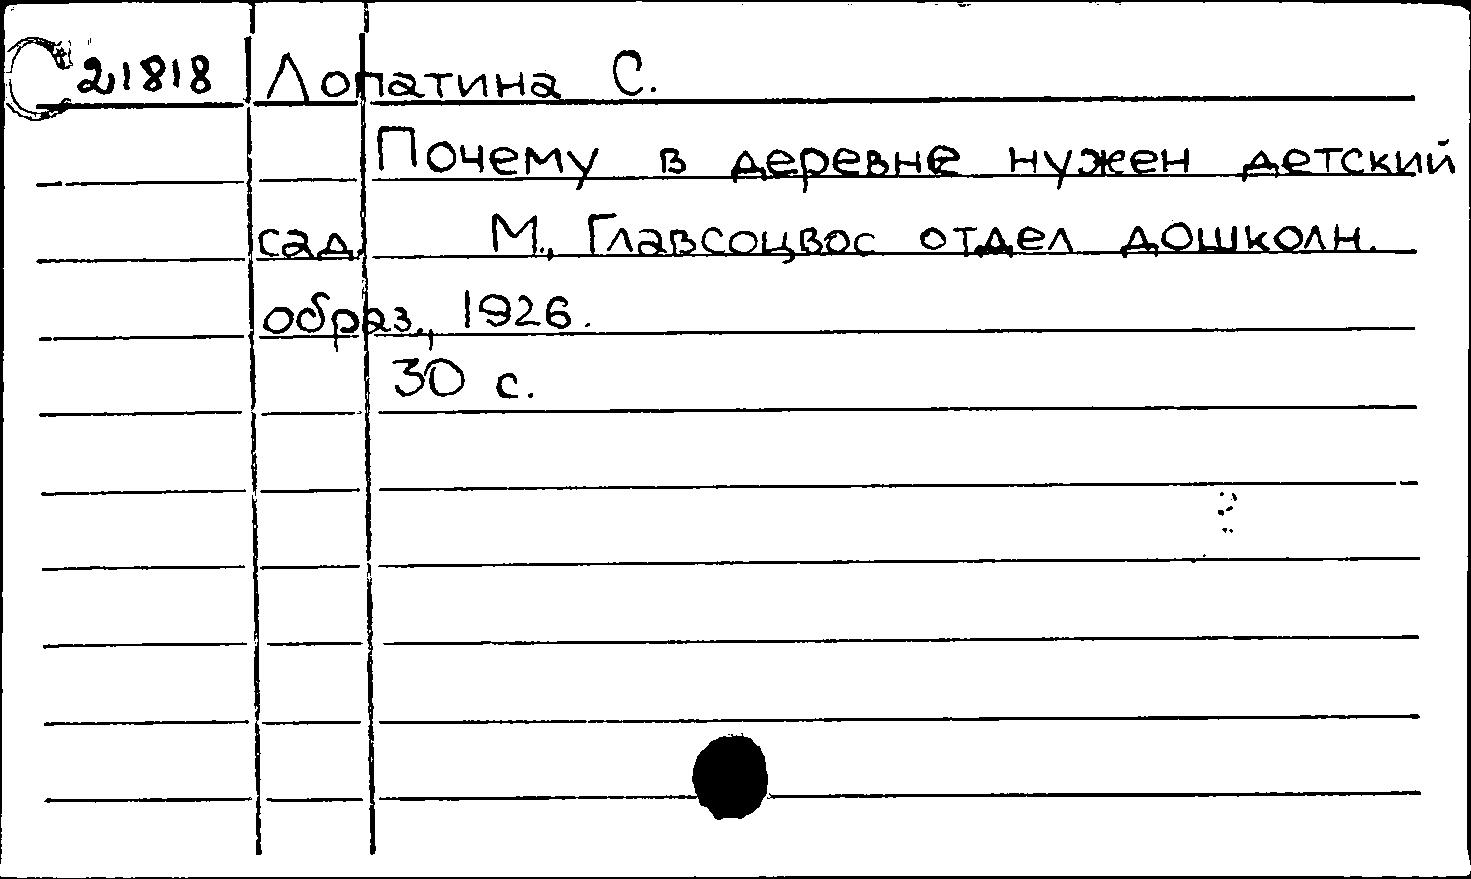 С 21818 Лопатина С.
Почему в деревне нужен детский
сад. М., Главсоцвос отдел дошколн.
образ., 1926.
30 с.